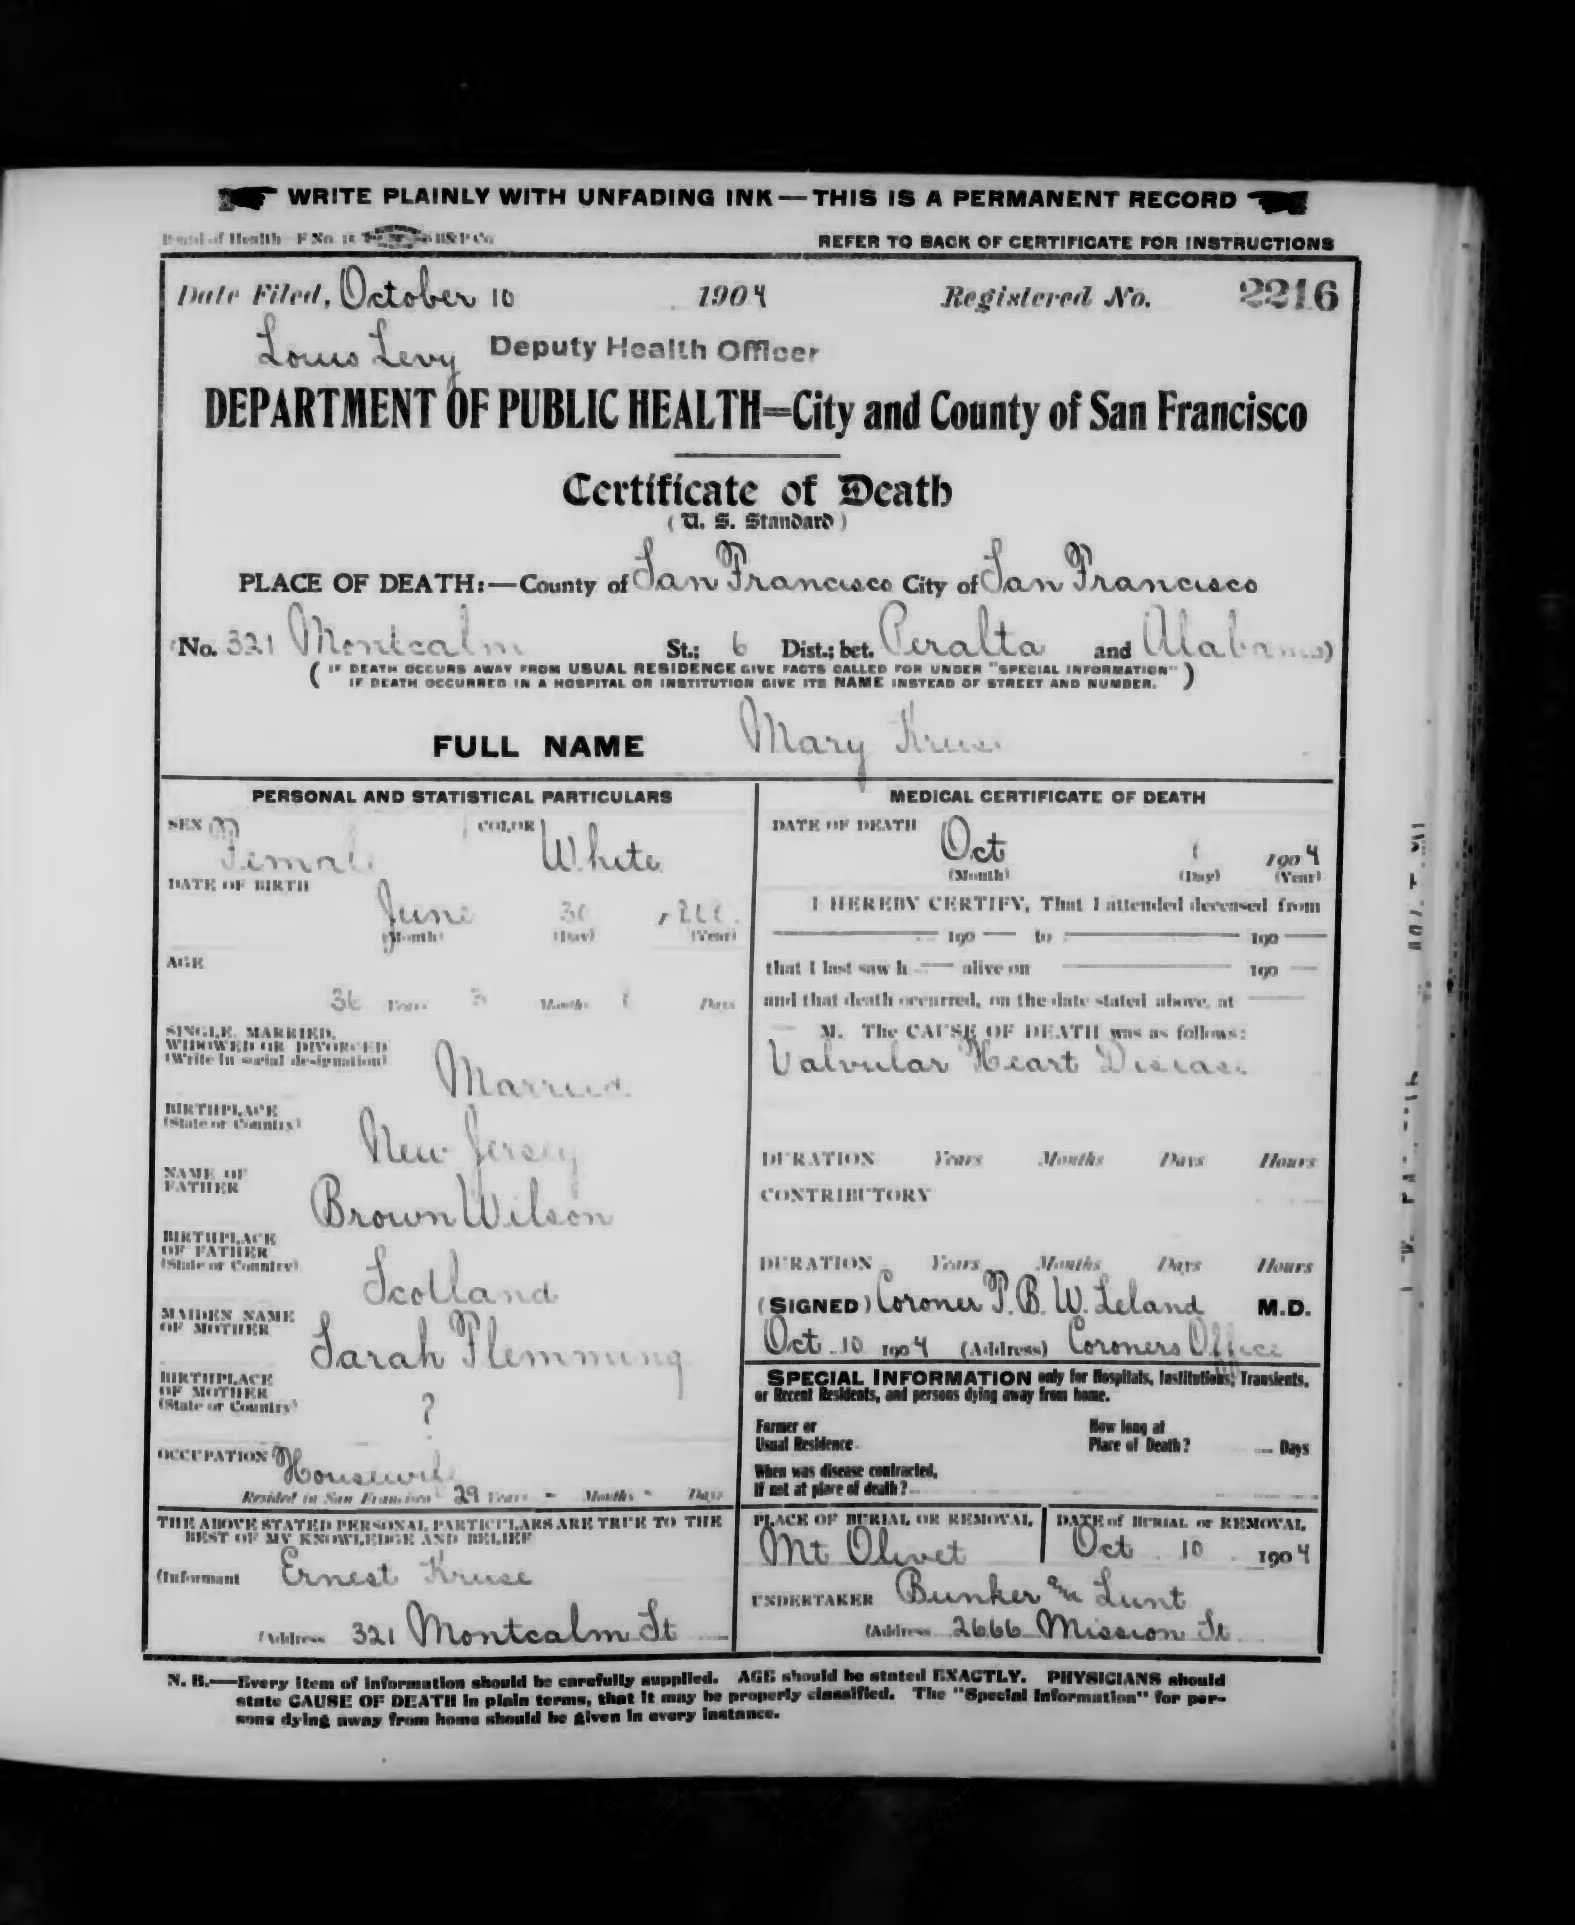 WRITE PLAINLY WITH UNFADING INK — THIS IS A PERMANENT RECORD
Board of Health—F No. H&P Co
REFER TO BACK OF CERTIFICATE FOR INSTRUCTIONS
Date Filed, October 10 1904 Registered No. 2216
Louis Levy Deputy Health Officer
DEPARTMENT OF PUBLIC HEALTH=City and County of San Francisco
Certificate of Death
(U. S. Standard)
PLACE OF DEATH:—County of San Francisco City of San Francisco
(No. 321 Montcalm St.; 6 Dist.; bet. Peralta and Alabama)
(IF DEATH OCCURS AWAY FROM USUAL RESIDENCE GIVE FACTS CALLED FOR UNDER "SPECIAL INFORMATION"
IF DEATH OCCURRED IN A HOSPITAL OR INSTITUTION GIVE ITS NAME INSTEAD OF STREET AND NUMBER.)
FULL NAME Mary Kruse
PERSONAL AND STATISTICAL PARTICULARS
SEX Female COLOR White
DATE OF BIRTH
June
(Month) (Day) (Year)
AGE
36 Years 3 Months Days
SINGLE, MARRIED,
WIDOWED OR DIVORCED
(Write in social designation)
Married
BIRTHPLACE
(State or Country)
New Jersey
NAME OF
FATHER
Brown Wilson
BIRTHPLACE
OF FATHER
(State or Country)
Scotland
MAIDEN NAME
OF MOTHER
Sarah Flemming
BIRTHPLACE
OF MOTHER
(State or Country)
?
OCCUPATION Housewife
Resided in San Francisco 29 Years - Months - Days
THE ABOVE STATED PERSONAL PARTICULARS ARE TRUE TO THE
BEST OF MY KNOWLEDGE AND BELIEF
(Informant Ernest Kruse
(Address 321 Montcalm St
MEDICAL CERTIFICATE OF DEATH
DATE OF DEATH
Oct 1904
(Month) (Day) (Year)
I HEREBY CERTIFY, That I attended deceased from
190 to 190
that I last saw h alive on 190
and that death occurred, on the date stated above, at
M. The CAUSE OF DEATH was as follows:
Valvular Heart Disease
DURATION Years Months Days Hours
CONTRIBUTORY
DURATION Years Months Days Hours
(SIGNED) Coroner T. B. W. Leland M.D.
Oct 10 1904 (Address) Coroners Office
SPECIAL INFORMATION only for Hospitals, Institutions, Transients,
or Recent Residents, and persons dying away from home.
Former or
Usual Residence
How long at
Place of Death? Days
When was disease contracted,
If not at place of death?
PLACE OF BURIAL OR REMOVAL
Mt Olivet
DATE of BURIAL or REMOVAL
Oct 10 1904
UNDERTAKER Bunker and Lunt
(Address 2666 Mission St
N. B.—Every item of information should be carefully supplied. AGE should be stated EXACTLY. PHYSICIANS should
state CAUSE OF DEATH in plain terms, that it may be properly classified. The "Special Information" for per-
sons dying away from home should be given in every instance.